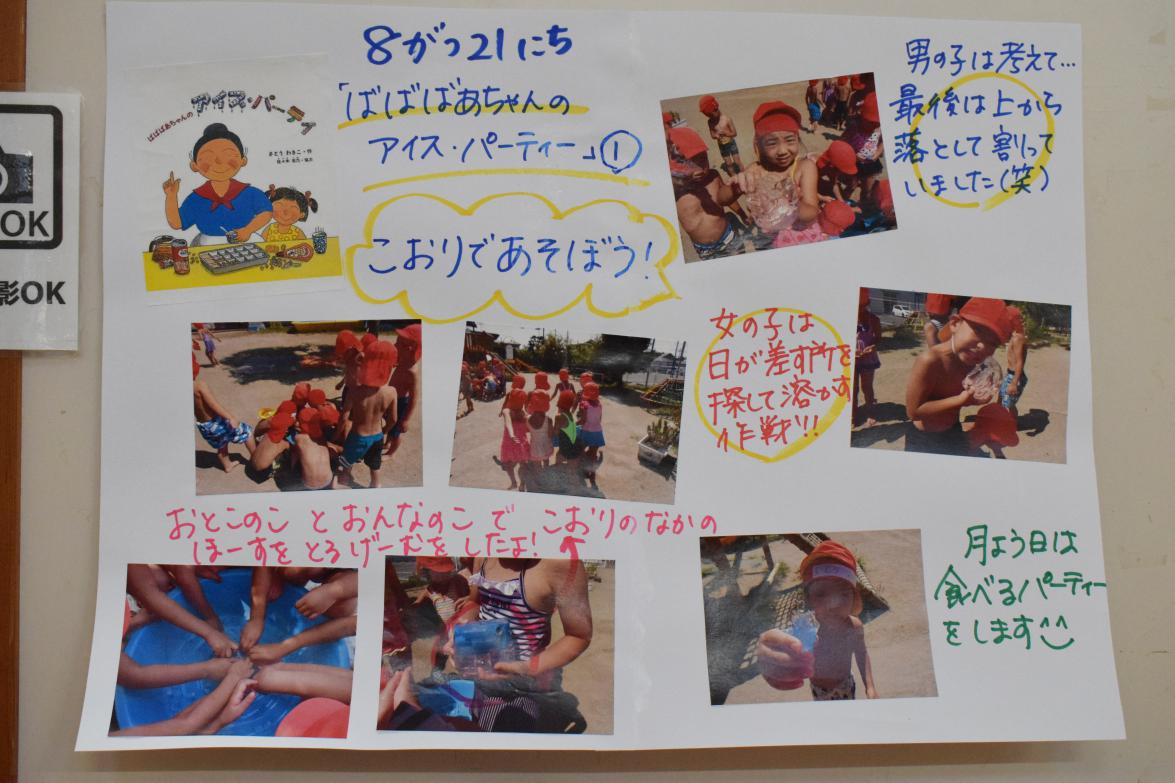 8がつ21にち
「ばばばあちゃんの
アイス・パーティー」①
こおりであそぼう!
ばばばあちゃんの
アイス・パーティ
さとう わきこ・作
男の子は考えて…
最後は上から
落として割って
いました(笑)
OK
影OK
女の子は
日が差す所を
探して溶かす
作戦!!
おとこのこ と おんなのこ で こおりのなかの
ほーすを とるげーむを したよ!
月よう日は
食べるパーティー
をします